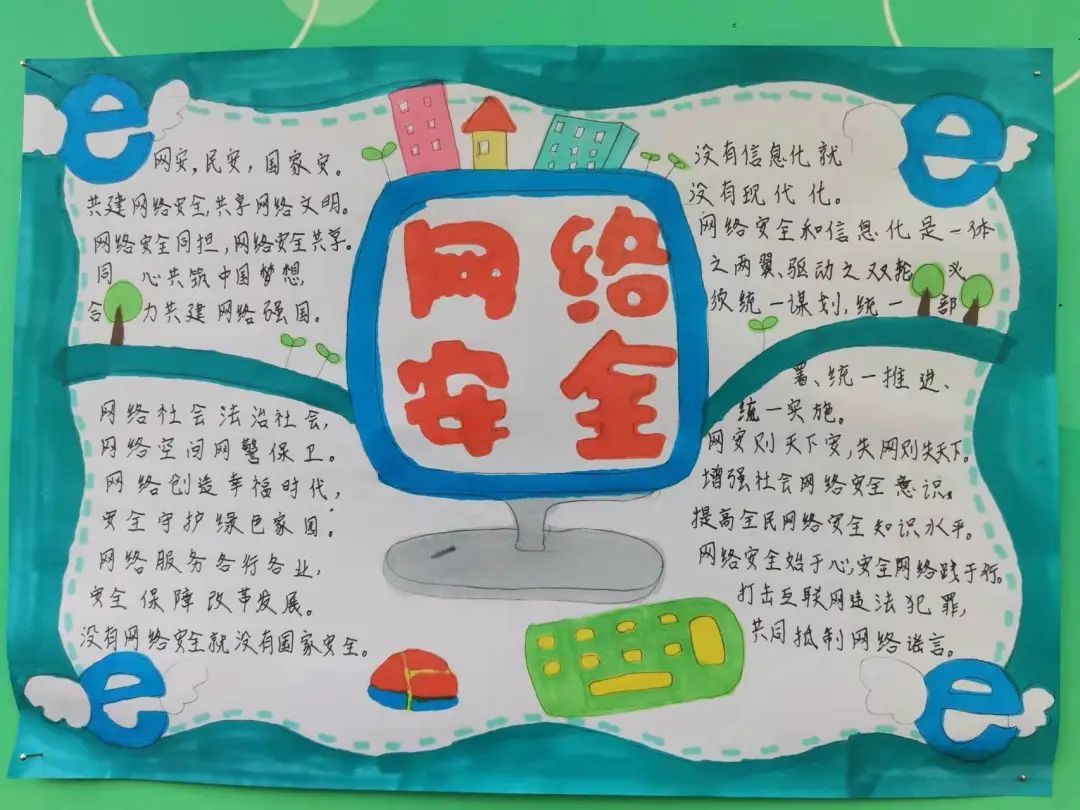 网安,民安,国家安。
共建网络安全,共享网络文明。
网络安全同担,网络安全共享。
同心共筑中国梦想,
合力共建网络强国。
网络社会法治社会,
网络空间网警保卫。
网络创造幸福时代,
安全守护绿色家园。
网络服务各行各业,
安全保障改革发展。
没有网络安全就没有国家安全。
网络
安全
没有信息化就
没有现代化。
网络安全和信息化是一体
之两翼、驱动之双轮,必
须统一谋划,统一部
署、统一推进、
统一实施。
网安则天下安,失网则失天下。
增强社会网络安全意识。
提高全民网络安全知识水平。
网络安全始于心,安全网络践于行。
打击互联网违法犯罪,
共同抵制网络谣言。
e
e
e
e